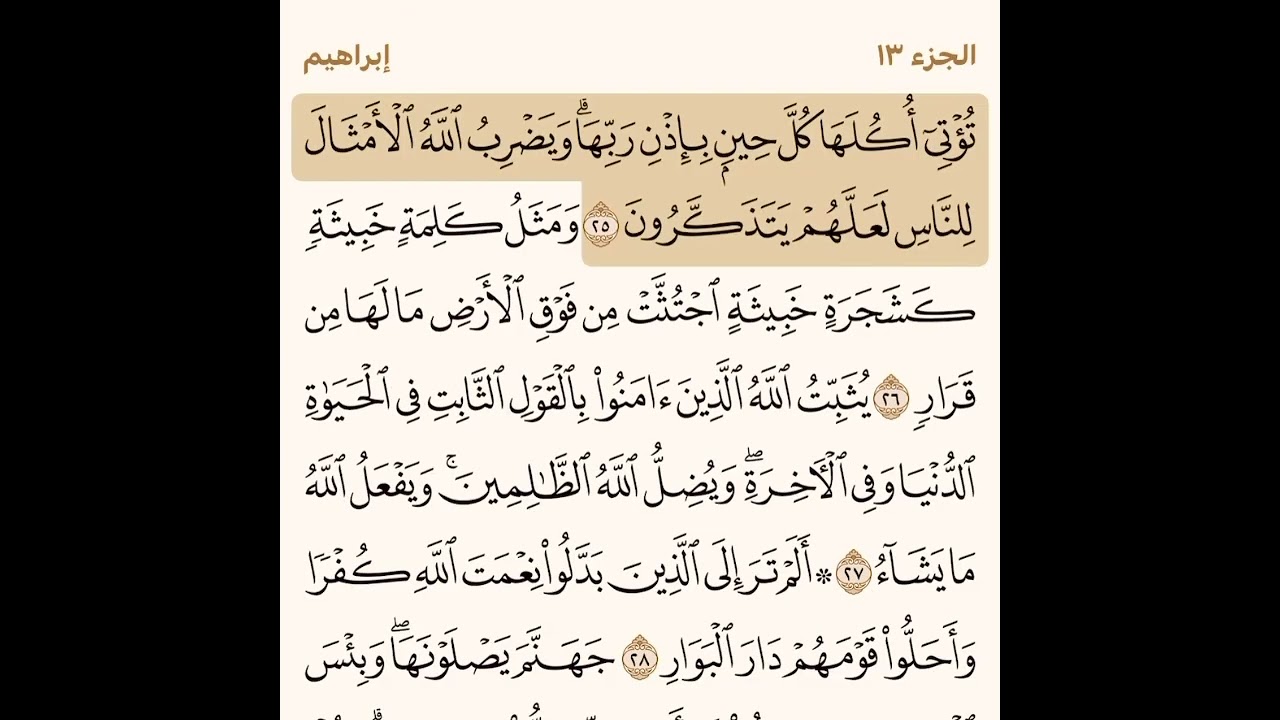 الجزء ١٣
إبراهيم
تُؤْتِىٓ أُكُلَهَا كُلَّ حِينٍۭ بِإِذْنِ رَبِّهَا ۗ وَيَضْرِبُ ٱللَّهُ ٱلْأَمْثَالَ
لِلنَّاسِ لَعَلَّهُمْ يَتَذَكَّرُونَ ٢٥ وَمَثَلُ كَلِمَةٍ خَبِيثَةٍ
كَشَجَرَةٍ خَبِيثَةٍ ٱجْتُثَّتْ مِن فَوْقِ ٱلْأَرْضِ مَا لَهَا مِن
قَرَارٍ ٢٦ يُثَبِّتُ ٱللَّهُ ٱلَّذِينَ ءَامَنُوا۟ بِٱلْقَوْلِ ٱلثَّابِتِ فِى ٱلْحَيَوٰةِ
ٱلدُّنْيَا وَفِى ٱلْـَٔاخِرَةِ ۖ وَيُضِلُّ ٱللَّهُ ٱلظَّـٰلِمِينَ ۚ وَيَفْعَلُ ٱللَّهُ
مَا يَشَآءُ ٢٧ ۞ أَلَمْ تَرَ إِلَى ٱلَّذِينَ بَدَّلُوا۟ نِعْمَتَ ٱللَّهِ كُفْرًا
وَأَحَلُّوا۟ قَوْمَهُمْ دَارَ ٱلْبَوَارِ ٢٨ جَهَنَّمَ يَصْلَوْنَهَا ۖ وَبِئْسَ